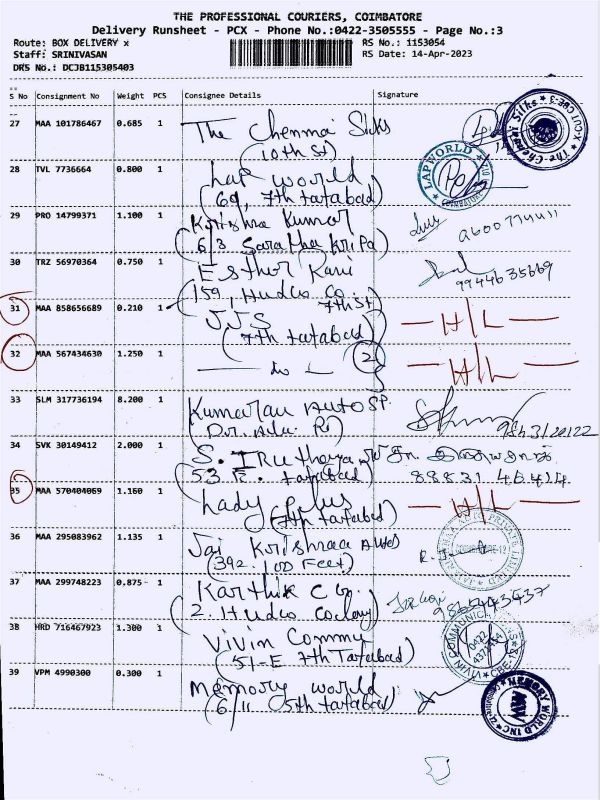 THE PROFESSIONAL COURIERS, COIMBATORE
Delivery Runsheet - PCX - Phone No.:0422-3505555 - Page No.:3
Route: BOX DELIVERY x
Staff: SRINIVASAN
DRS No.: DCJB115305403
RS No.: 1153054
RS Date: 14-Apr-2023
S No Consignment No Weight PCS Consignee Details Signature
27 MAA 101786467 0.685 1 The Chennai Silks
(10th St)
28 TVL 7736664 0.800 1 Lap world
(69, 7th tatabad)
LAPWORLD
COIMBATORE
29 PRO 14799371 1.100 1 Krishna Kumar
(63 Saratha Kripa)
30 TRZ 56970364 0.750 1 Esther Rani
(159, Hudco Co.
7th St)
9944635669
31 MAA 858656689 0.210 1 JJS
(7th tatabad)
H/L
32 MAA 567434630 1.250 1 2
H/L
33 SLM 317736194 8.200 1 Kumaran Auto SP.
34 SVK 30149412 2.000 1 S.
tatabad)
88831
35 MAA 570404069 1.160 1 Lady Plus
(7th tatabad)
H/L
36 MAA 295083962 1.135 1 Jai Krishnaa Autos
(392. 100 Feet)
PRIVATE LIMITED
37 MAA 299748223 0.875 1 Karthik C
2. Hudco Colony)
38 HRD 716467923 1.300 1 Vivin Commu
(51-E 7th Tatabad)
VIVIN COMMUNICATION
0422
39 VPM 4990300 0.300 1 Memory world
(6/11 5th tatabad)
MEMORY WORLD INC
MW
The Chennai Silks
CBE-3